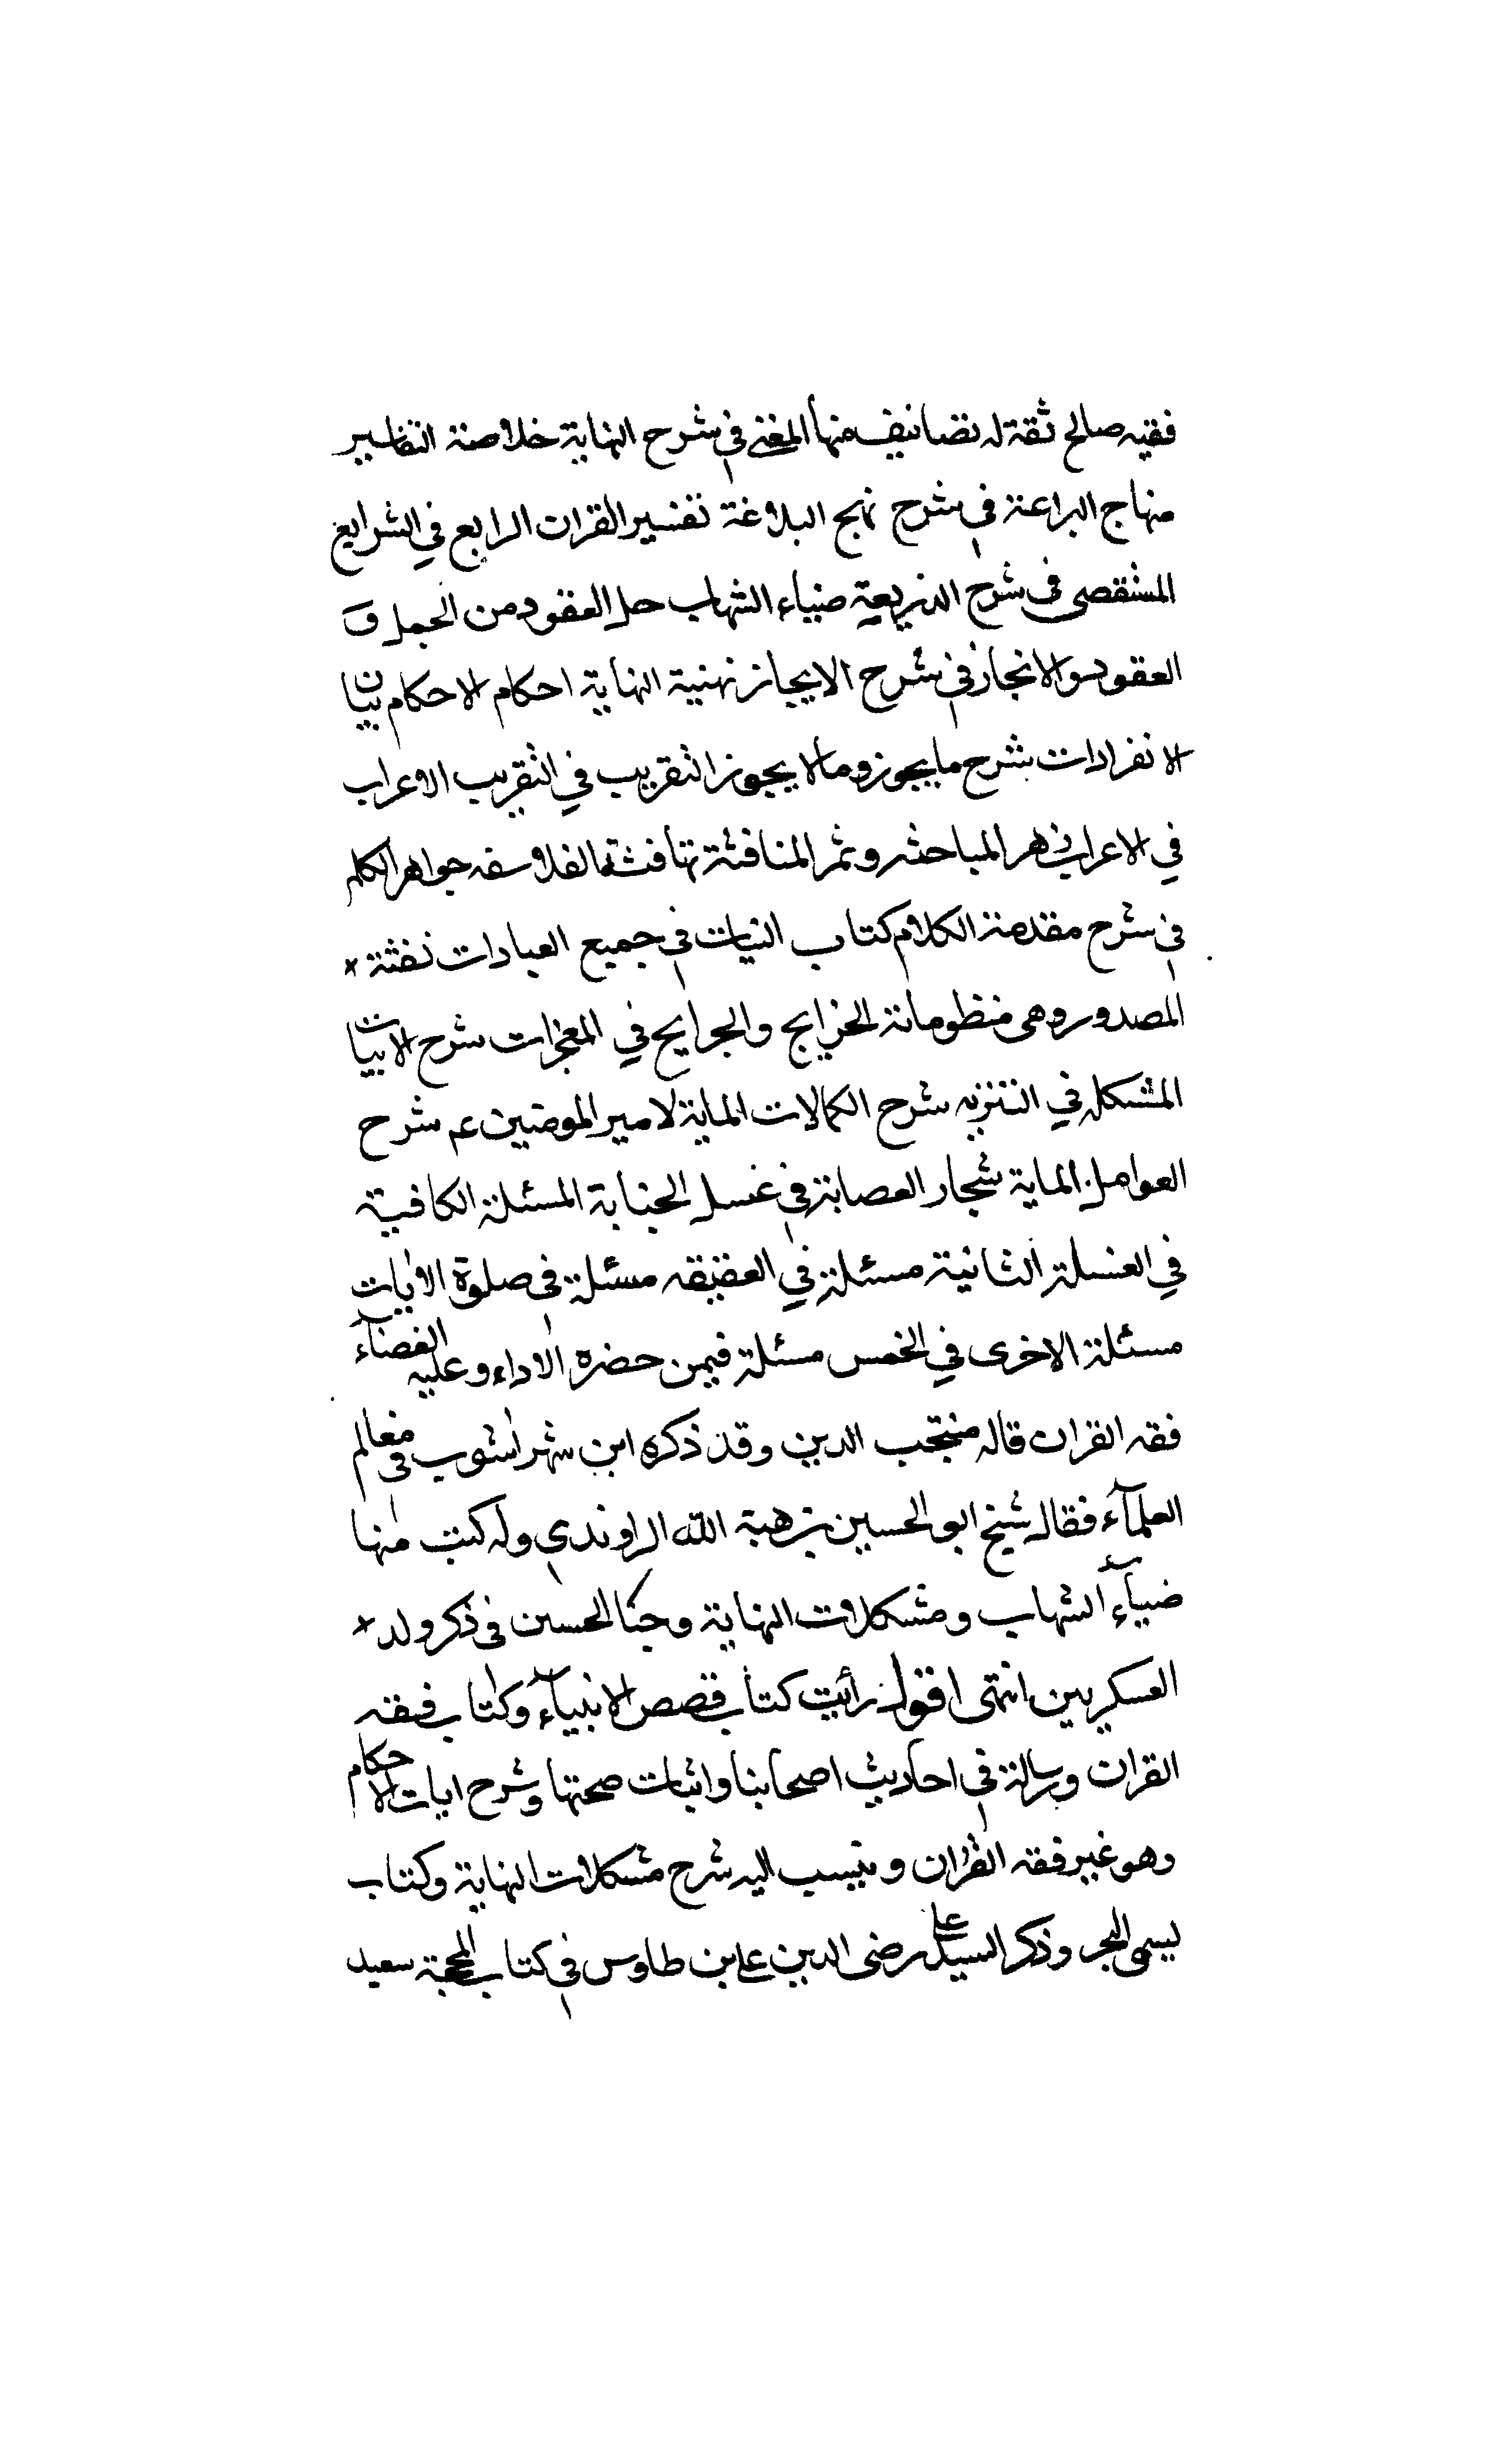 فقيه صالح ثقة له تصانيف منها المغني في شرح النهاية خلاصة التفاسير
منهاج البراعة في شرح نهج البلاغة تفسير القران الرابع في الشرايع
المستقصى في شرح الذريعة ضياء الشهاب حل العقود من الجمل و
العقود والانجاز في شرح الايجاز نهنية النهاية احكام الاحكام بيان
الانفرادات شرح ما يجوز وما لا يجوز التقريب في التقريب الاعراب
في الاعراب زهر المباحثه وثمر المنافثة تهافت الفلاسفه جواهر الكلم
في شرح مقدمة الكلام كتاب النيات في جميع العبادات نفثة
المصدور وهى منظوماته الخرايج والجرايح في المعجزات شرح الابيات
المشكله في التنزيه شرح الكمالات الماية لامير المومنين عم شرح
العوامل الماية شجار العصابة في غسل الجنابة المسئلة الكافية
في الغسلة الثانية مسئلة في العقيقه مسئلة في صلوة الايات
مسئلة الاخرى في الخمس مسئلة فيمن حضره الاداء وعليه القضآء
فقه القران قاله منتجب الدين وقد ذكره ابن شهراشوب في معالم
العلمآء فقال شيخ ابو الحسين بن هبة الله الراوندي وله كتب منها
ضيآء الشهاب ومشكلات النهاية وجنا الحسين في ذكر ولد
العسكريين انتهى اقول رأيت كتاب قصص الانبيآء وكتاب فقه
القران ورسالة في احاديث اصحابنا واثبات صحتها وشرح ايات الاحكام
وهو غير فقه القران وينسب اليه شرح مشكلات النهاية وكتاب
يسمى البحر وذكر السيد رضى الدين على بن طاوس في كتاب المحجة سعيد